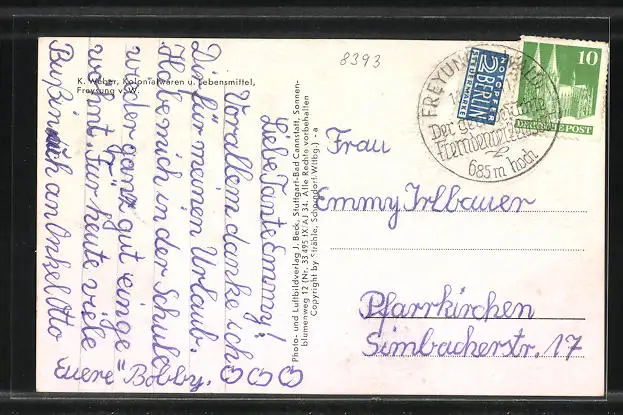 K. Weber, Kolonialwaren u. Lebensmittel,
Freyung v. W.
Liebe Tante Emmy!
Vorallem danke ich
Dir für meinen Urlaub.
Habe mich in der Schule
wieder ganz gut einge
wöhnt. Für heute viele
Bußin auch an Onkel Otto
Euere "Bobby.
Photo- und Luftbildverlag J. Beck, Stuttgart-Bad Cannstatt, Sonnen-
blumenweg 12 (Nr. 33 495 IX/AJ 34. Alle Rechte vorbehalten
Copyright by Strähle, Schorndorf Wttbg.) - a
8393
NOTOPFER
2 BERLIN
STEUERMARKE
FREYUNG
Der
685 m hoch
10
DEUTSCHE POST
Frau
Emmy Irlbauer
Pfarrkirchen
Simbacherstr. 17